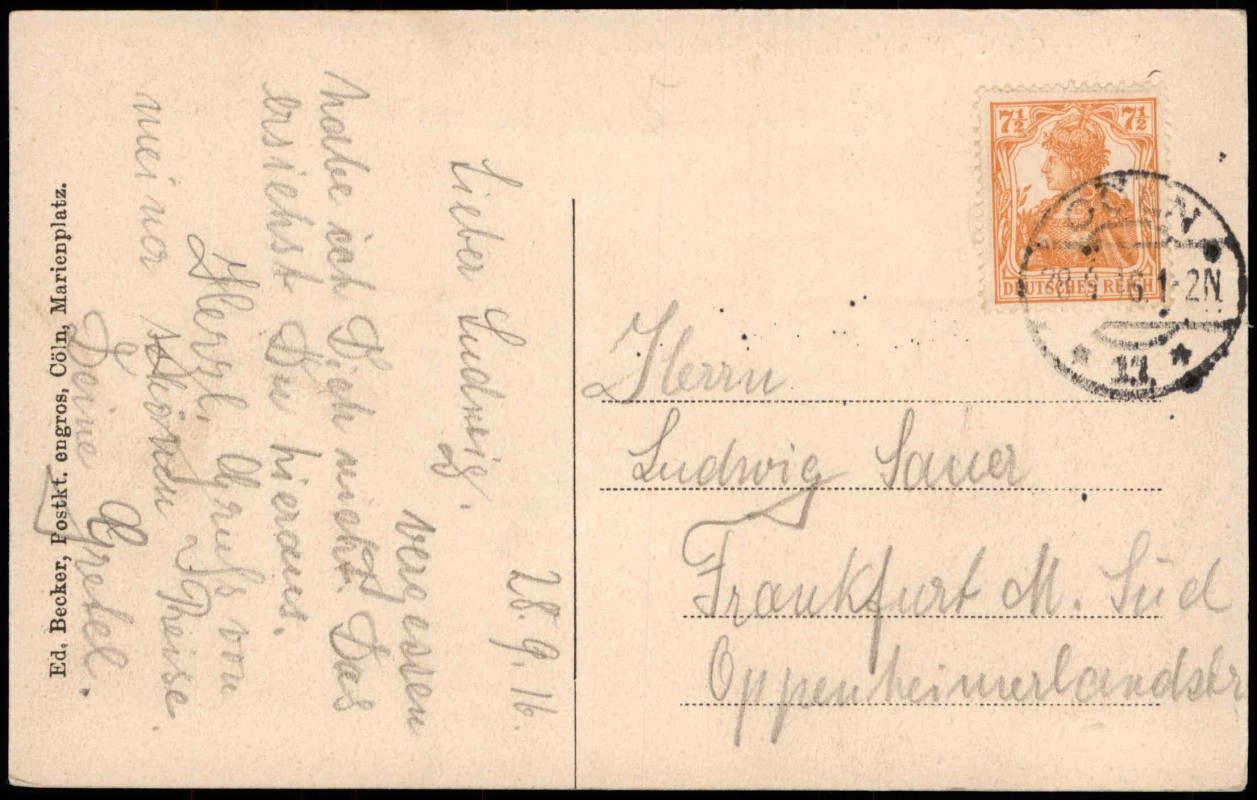 28.9.16.
Lieber Ludwig.
vergessen
habe ich Dich nicht. Das
ersiehst Du hieraus.
Herzl. Gruß von
meiner schönen Reise.
Deine Gretel.
Ed. Becker, Postkt. engros, Cöln, Marienplatz.
7½ 7½
DEUTSCHES REICH
CÖLN
28.9.16.1-2N.
* 11 *
Herrn
Ludwig Sauer
Frankfurt M. Süd
Oppenheimerlandstr